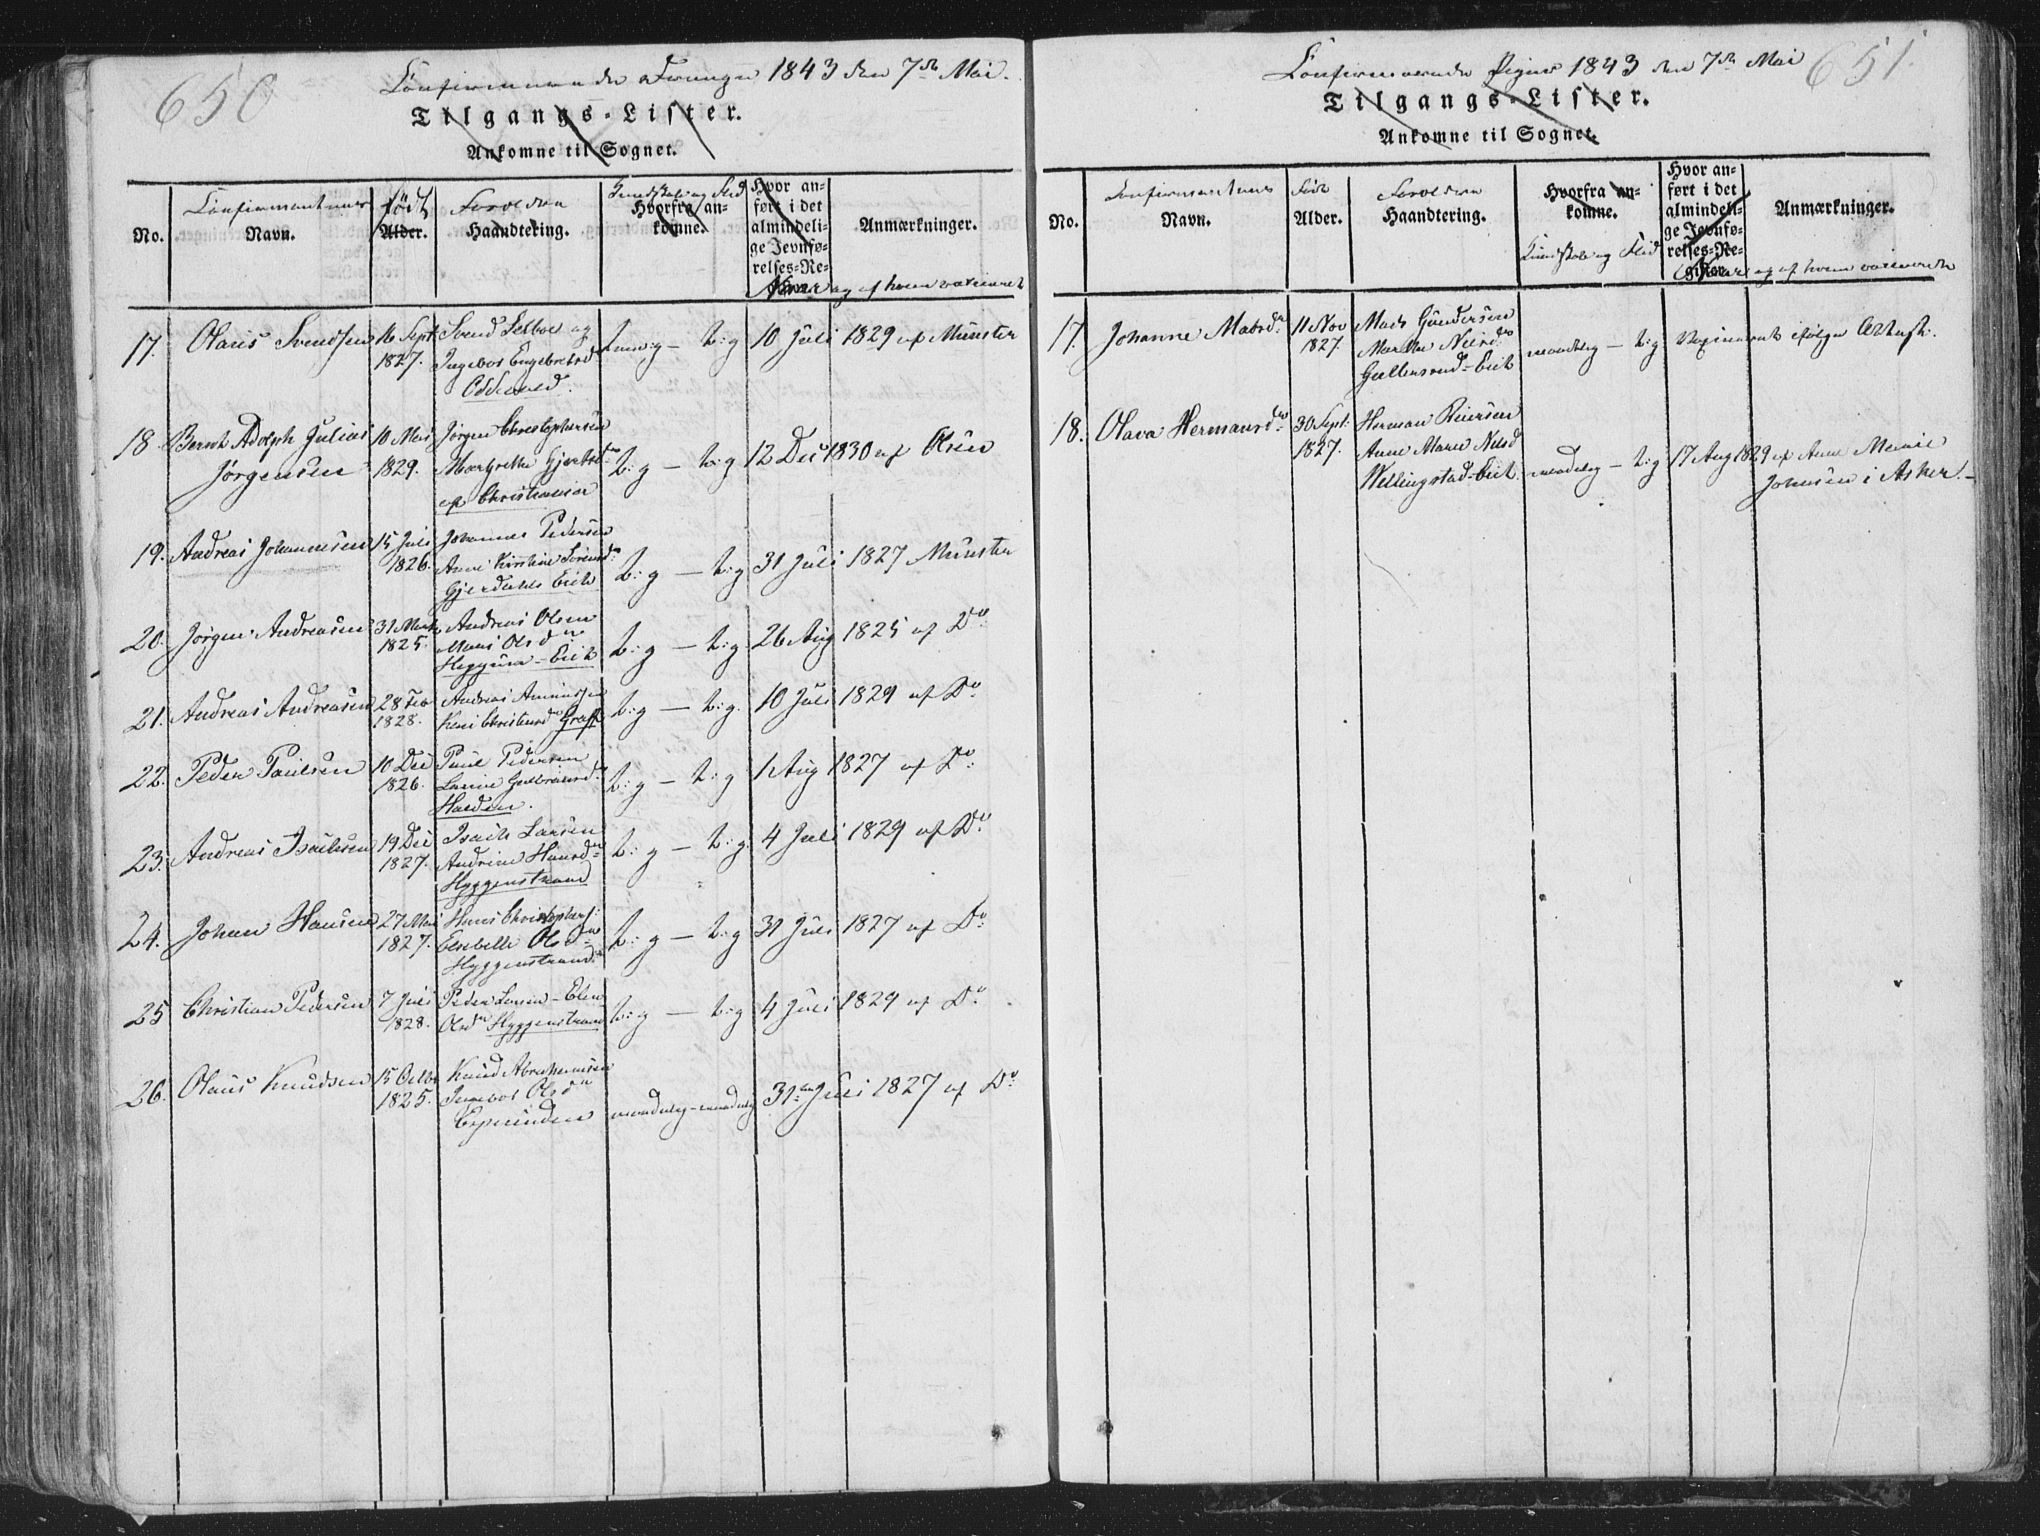 650
Confirmerede Drenge 1843 den 7de Mai.
Tilgangs-Lister.
Ankomne til Sognet.
No.
Confirmantens
Navn.
født
Alder.
Forældre
Haandtering.
Kundskab og Flid
Hvorfra an-
komne.
Hvor an-
ført i det
almindeli-
ge Jevnfø-
relses-Re-
Anmærkninger.
Naar og af hvem vaccineret
17. Olaus Svendsen
16 Sept
1827.
Svend og
Ingebor Engebretsd
t:g
10 Juli 1829 af Münster
18. Bernt Adolph Julius
Jørgensen
10 Mai
1829.
Jørgen Christophersen
Margrethe Gjertsd
af Christiania
t:g — t:g
12 Dec 1830 af Olsen
19. Andreas Johannesen
15 Juli
1826.
Johannes Pedersen
Anne Kirstine Sørensd
Gjerdahls Eie
t:g — t:g
31 Juli 1827 Münster
20. Jørgen Andreasen
31 Marts
1825.
Andreas Olsen
Mari Olsdn
t:g — t:g
26 Aug 1825 af Do
21. Andreas Andreasen
28 Feb
1828.
Andreas
t:g — t:g.
10 Juli 1829 af Do
22. Peder Paulsen
10 Dec
1826.
Paul Pedersen
t:g — t:g
1 Aug 1827 af Do
23. Andreas Isaksen
19 Dec
1827.
Isach Larsen
Andrine Hansd
Hyggenstrand
t:g — t:g.
4 Juli 1829 af Do
24. Johan Hansen
27 Mai
1827.
Hans Christophers:
Elsebeth Olsdn
Hyggenstrand
t:g — t:g
31 Juli 1827 af Do
25 Christian Pedersen
7 Juli
1828.
Peder Larsen – Elen
Olsdn Hyggenstrand
t:g — t:g
4 Juli 1829 af Do
26. Olaus Knudsen
15 Octbr
1825.
Knud Abrahamsen
Ingebor Olsdn
maadelig – maadelig
31te Juli 1827 af Do
651.
Confirmerede Piger 1843 den 7de Mai
Tilgangs-Lister.
Ankomne til Sognet.
No.
Confirmantens
Navn.
Født
Alder.
Forældre
Haandtering.
Hvorfra an-
komne.
Kundskab og Flid
Hvor an-
ført i det
almindeli-
ge Jevnfø-
relses-Re-
gister.
Anmærkninger.
Naar og af hvem vaccinerede
17. Johanne Madsdr
11 Nov
1827.
Mads Gundersen
Marthe
maadelig — t:g
Vaccineret ifølge Attest.
18. Olava Hermansdr
30 Sept:
1827.
Herman Reiersen
Anne Marie Nilsd
Wellingstad-Eiet.
maadelig — t:g
17 Aug 1829 af Anne Marie
Johnsen i Asker.